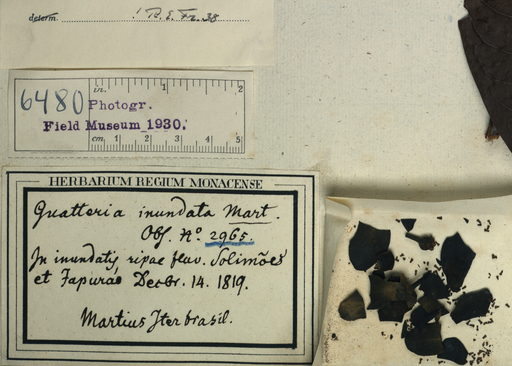 determ. ! R. E. Fr. 38
in. 1 2
6480 Photogr.
Field Museum 1930.
cm. 1 2 3 4 5
HERBARIUM REGIUM MONACENSE
Guatteria inundata Mart.
Obs. No. 2965.
In inundatis ripae fluv. Solimões
et Japurá Decbr. 14. 1819.
Martius Iter brasil.